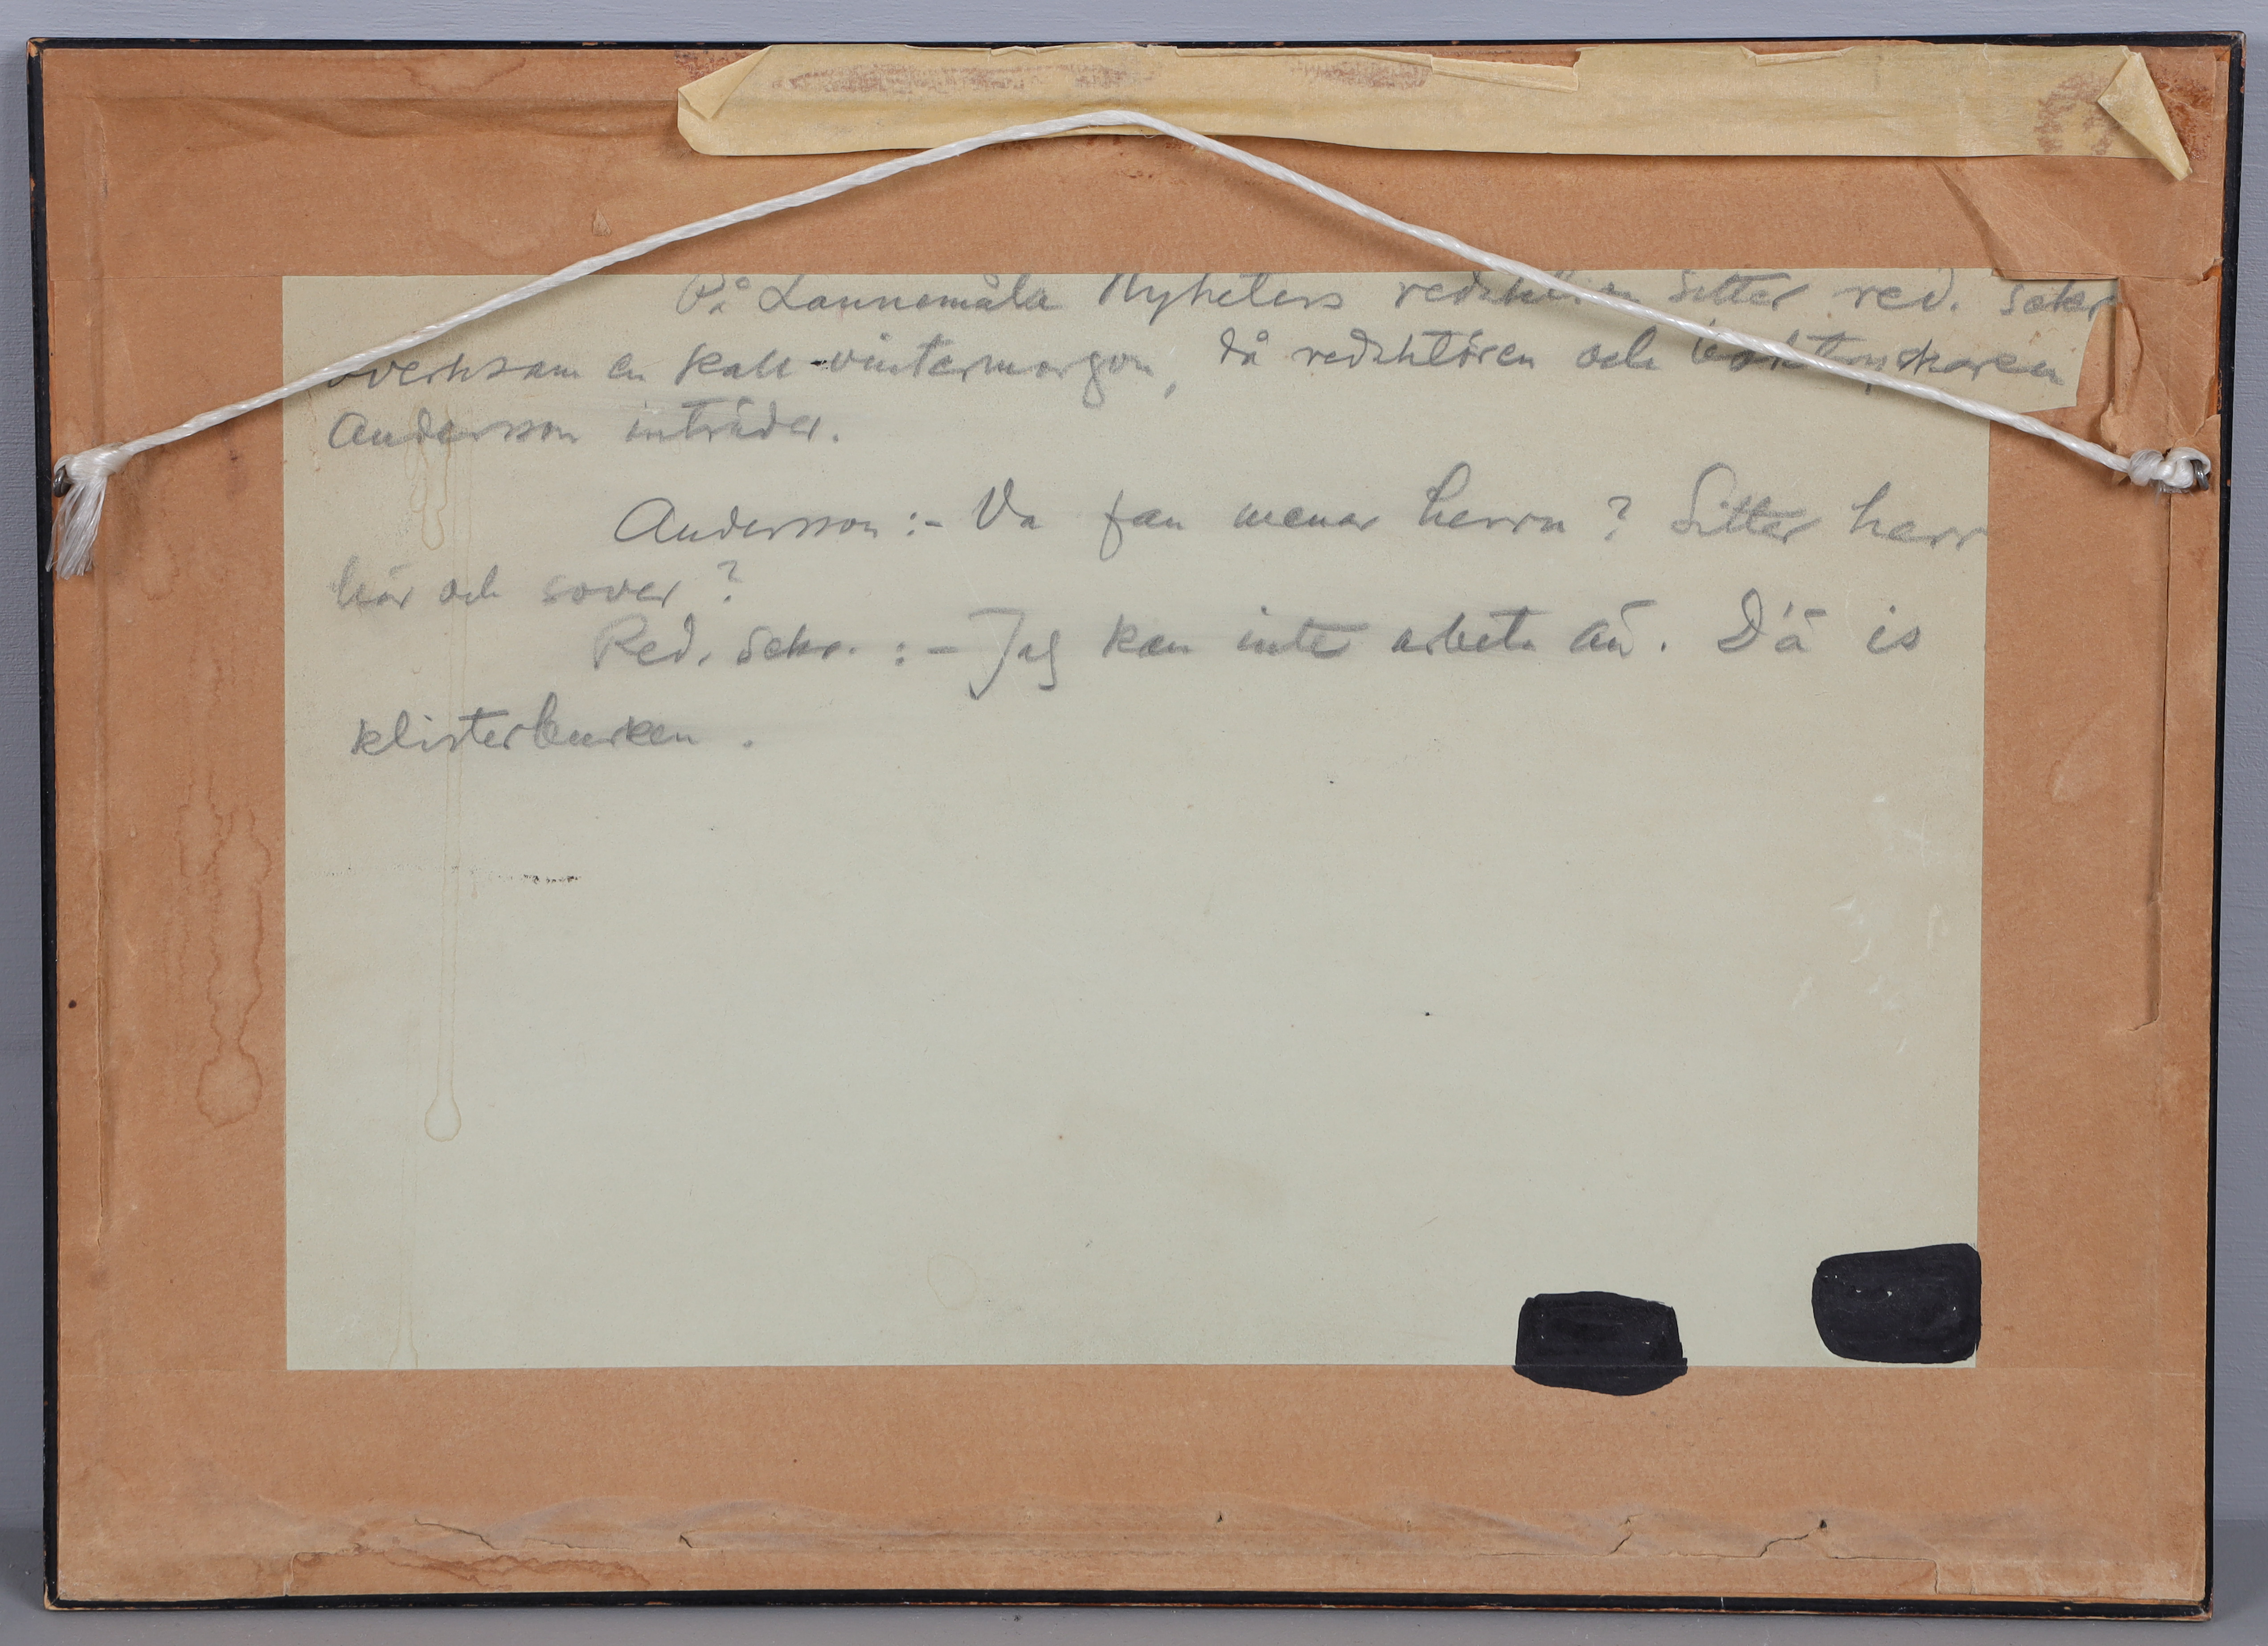 På Lannemåla Nyheters redaktion sitter red. sekr
overksam en kall vintermorgon, då redaktören och boktryckaren
Andersson inträder.
Andersson :- Va fan menar herrn? Sitter herr
här och sover?
Red. sekr. :- Jag kan inte arbeta än. D'ä is
klisterburken.